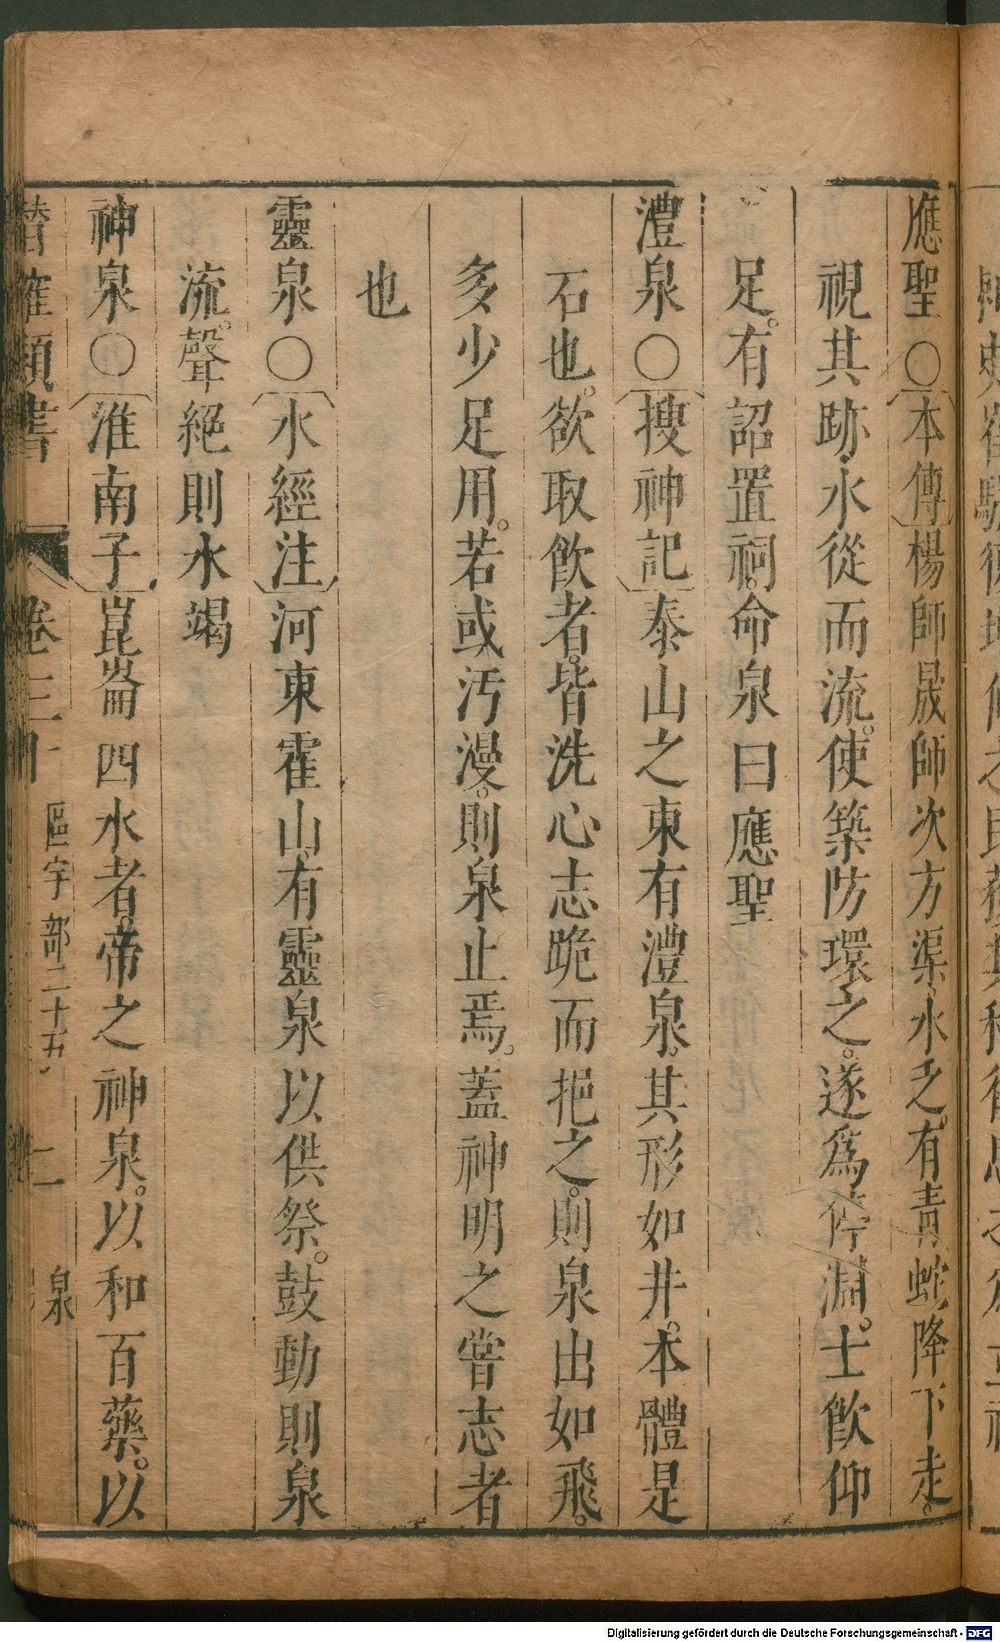 應聖○〔本傳〕楊師晟師次方渠水乏有青蛇降下走。
視其跡水從而流。使築防環之。遂爲停淵。士飲仰
足。有詔置祠。命泉曰應聖
澧泉○〔搜神記〕泰山之東有澧泉。其形如井。本體是
石也。欲取飲者。皆洗心志跪而挹之。則泉出如飛。
多少足用。若或汚漫。則泉止焉。蓋神明之嘗志者
也
靈泉○〔水經注〕河東霍山有靈泉以供祭。鼓動則泉
流。聲絕則水竭
神泉○〔淮南子〕崑崙四水者。帝之神泉。以和百藥。以
潛確類書 卷三十 區宇部二十五 二 泉
Digitalisierung gefördert durch die Deutsche Forschungsgemeinschaft - DFG